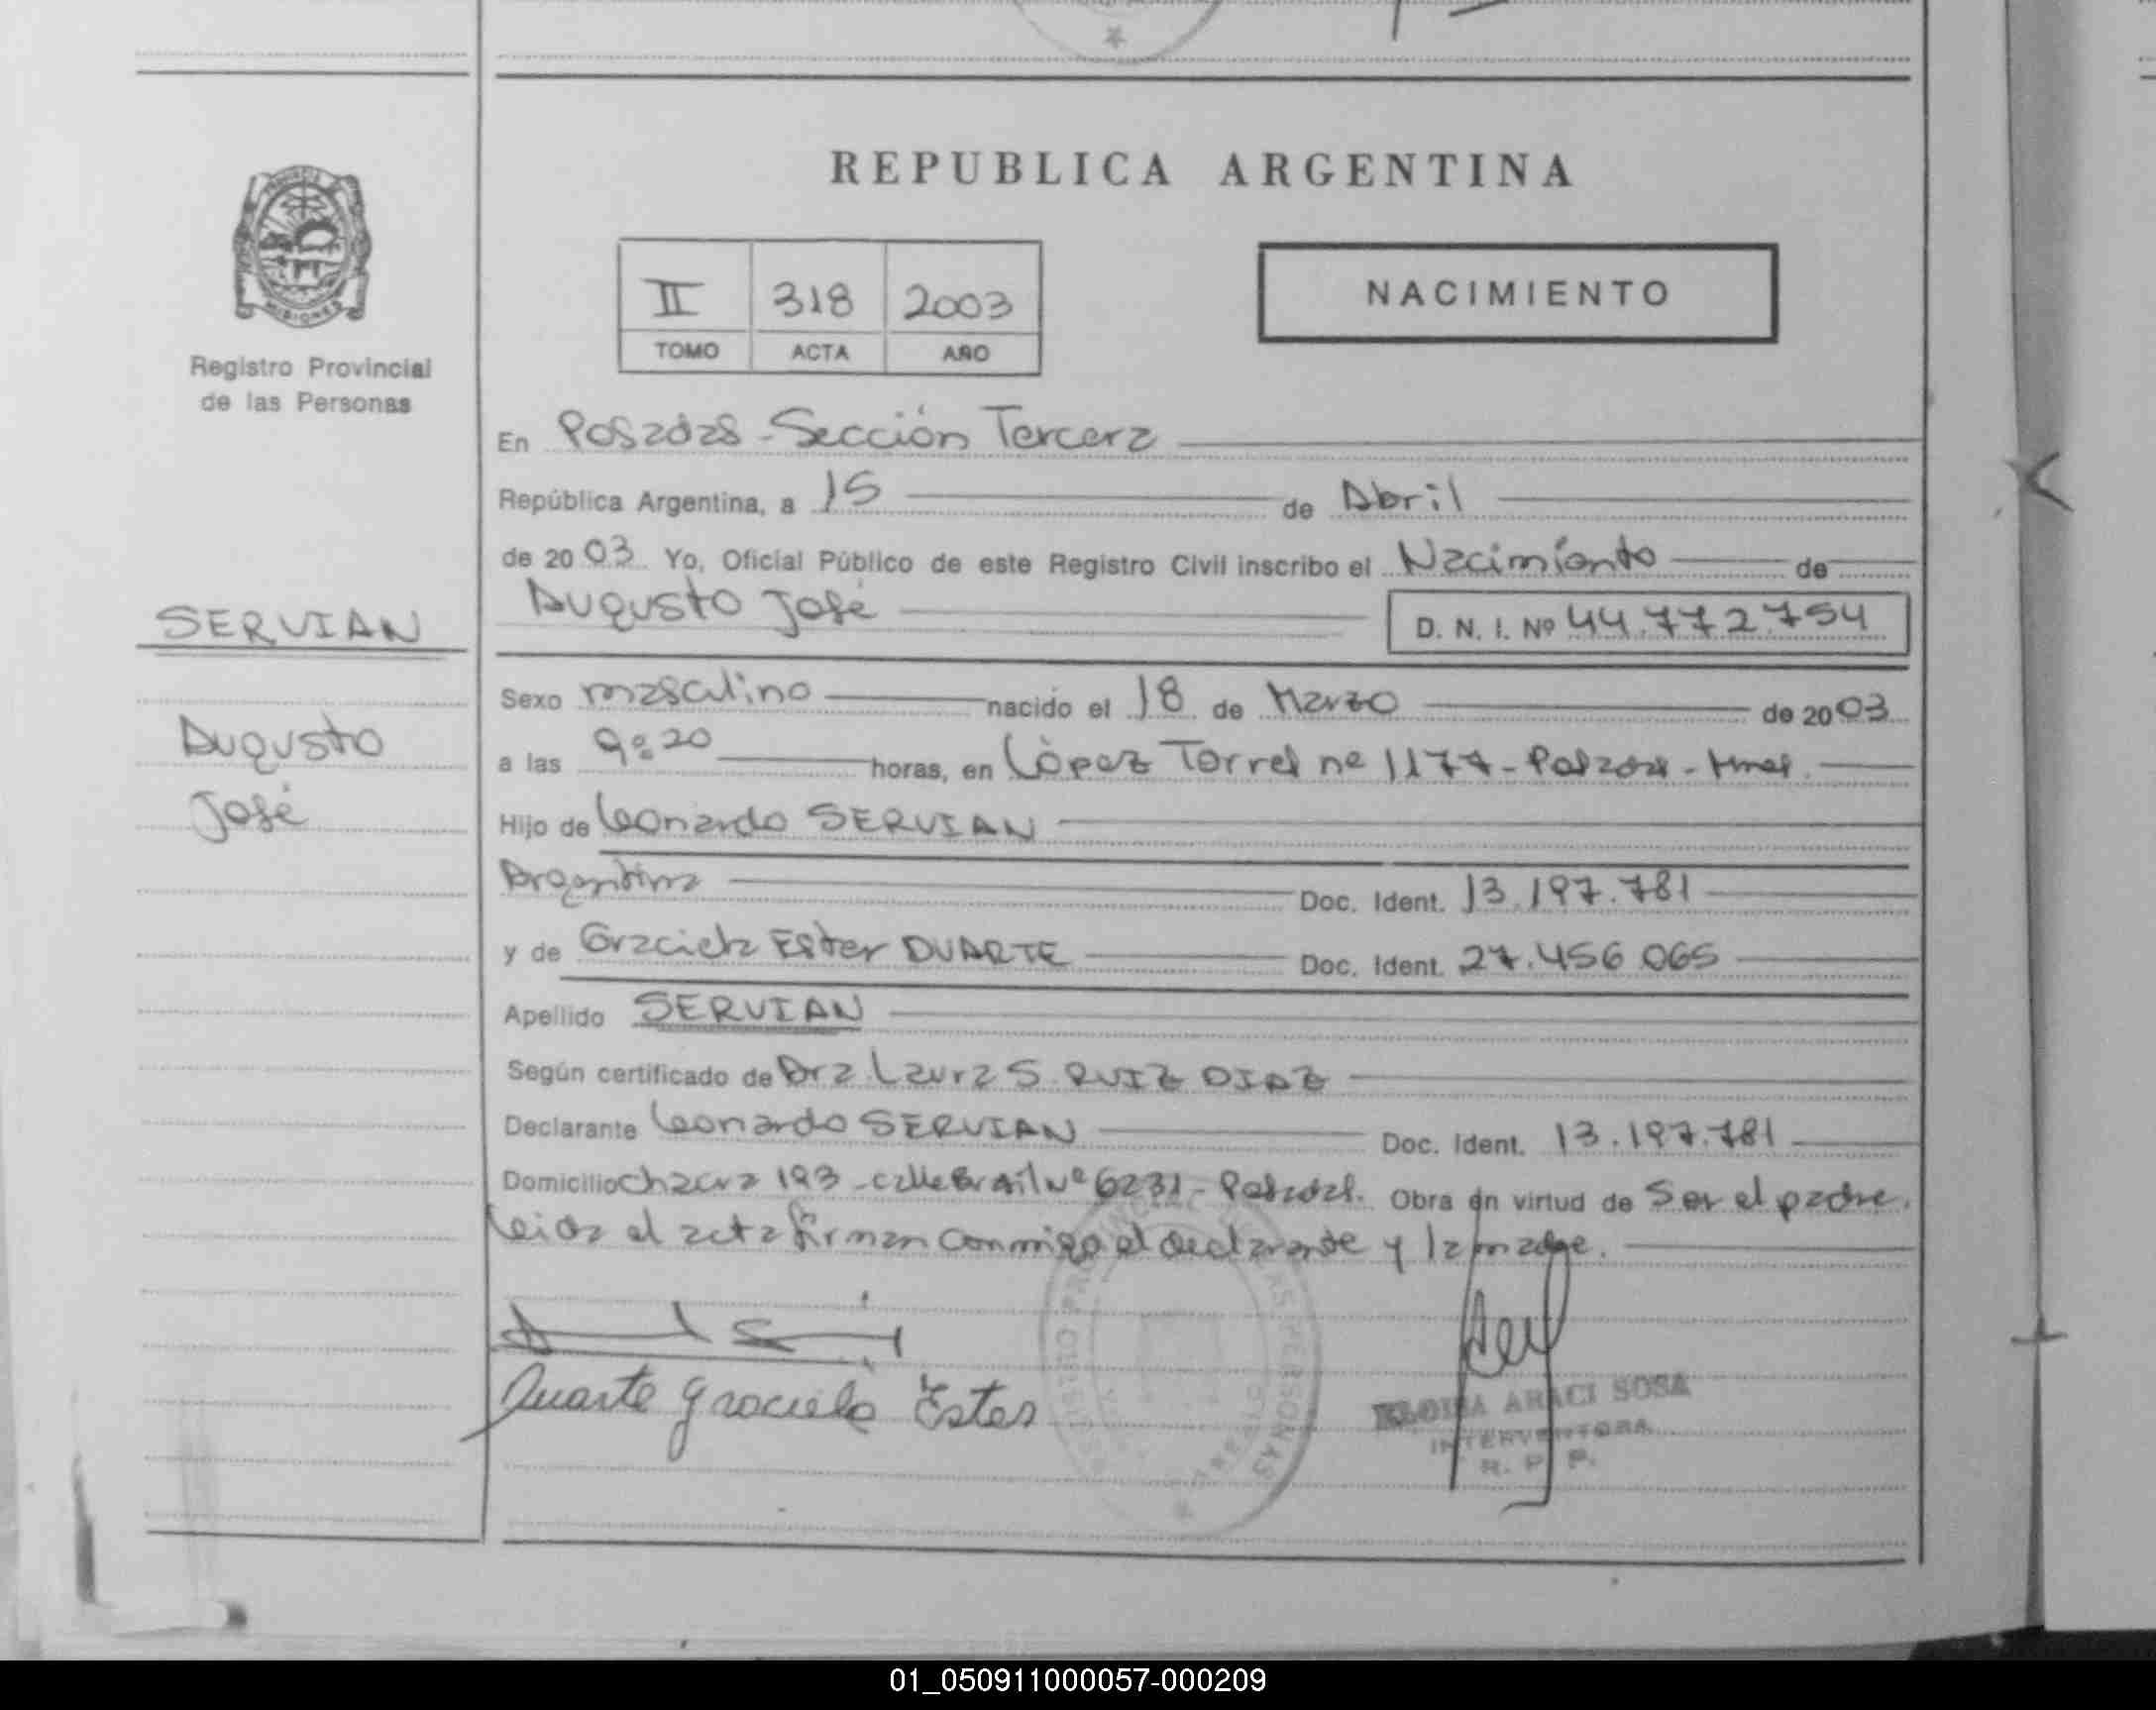 REPUBLICA ARGENTINA
II 318 2003
TOMO ACTA AÑO
NACIMIENTO
PROVINCIA DE
MISIONES
Registro Provincial
de las Personas
SERVIAN
Augusto
José
En Posadas - Sección Tercera
República Argentina, a 15 de Abril
de 2003 Yo, Oficial Público de este Registro Civil inscribo el Nacimiento de
Augusto José D. N. I. Nº 44.772.754
Sexo masculino nacido el 18 de Marzo de 2003
a las 9:20 horas, en López Torres nº 1177 - Posadas - Mnes.
Hijo de Leonardo SERVIAN
Argentina Doc. Ident. 13.197.781
y de Graciela Ester DUARTE Doc. Ident. 27.456.065
Apellido SERVIAN
Según certificado de Dra. Laura S. RUIZ DIAZ
Declarante Leonardo SERVIAN Doc. Ident. 13.197.781
Domicilio Chacra 193 - calle Brasil Nº 6231 - Posadas. Obra en virtud de Ser el padre.
Leida el acta firman conmigo el declarante y la madre.
Duarte Graciela Ester
ELOISA ARACI SOSA
INTERVENTORA
R. P. P.
01_050911000057-000209